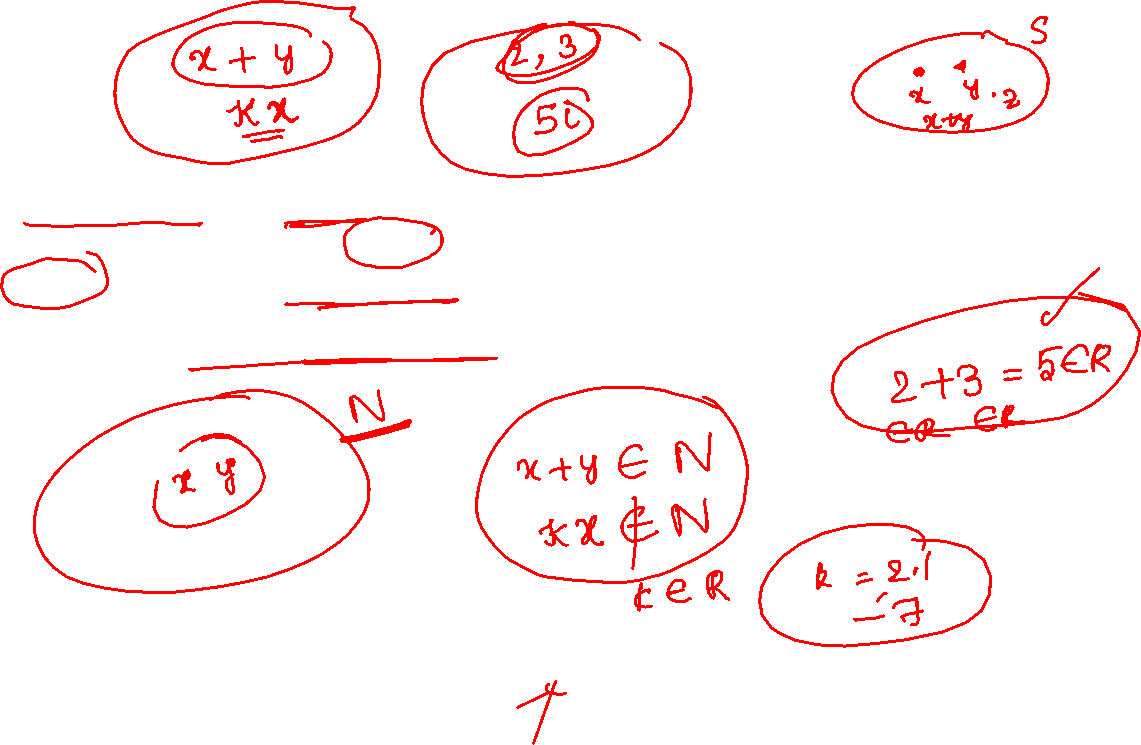 x + y
kx
2, 3
5i
S
x y . z
x+y
2+3 = 5∈R
∈R ∈R
N
x y
x+y ∈ N
kx ∉ N
k∈R
k = 2.1
-7